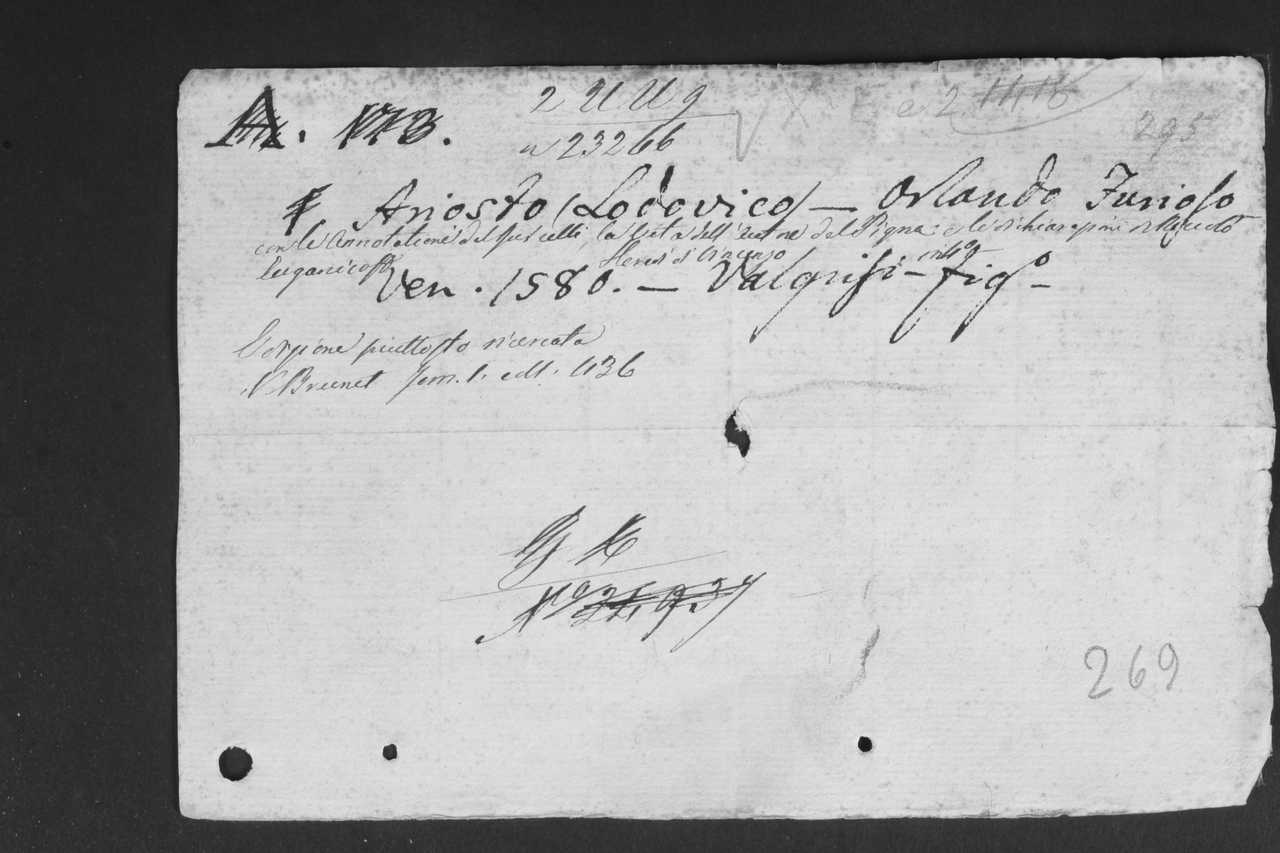 173.
2 U U 9
n 23266
e 2
295
Ariosto (Lodovico) — Orlando Furioso
con le Annotationi del Ruscelli, la Vita dell'Autore del Pigna: e le dichiarazioni
Heredi di Vincenzo
Ven. 1580. — Valgrisi — fig.º
Edizione piuttosto ricercata
V. Brunet Tom. 1. edl. 436
N.º
269